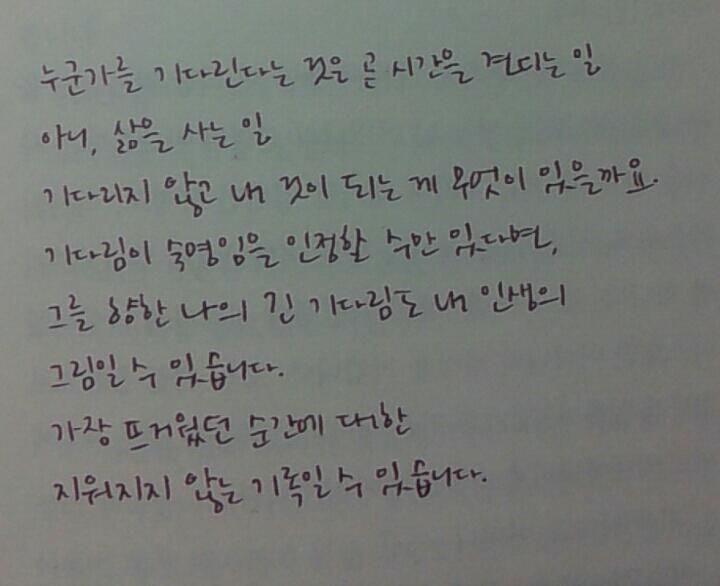 누군가를 기다린다는 것은 곧 시간을 견디는 일
아니, 삶을 사는 일
기다리지 않고 내 것이 되는 게 무엇이 있을까요.
기다림이 숙명임을 인정할 수만 있다면,
그를 향한 나의 긴 기다림도 내 인생의
그림일 수 있습니다.
가장 뜨거웠던 순간에 대한
지워지지 않는 기록일 수 있습니다.